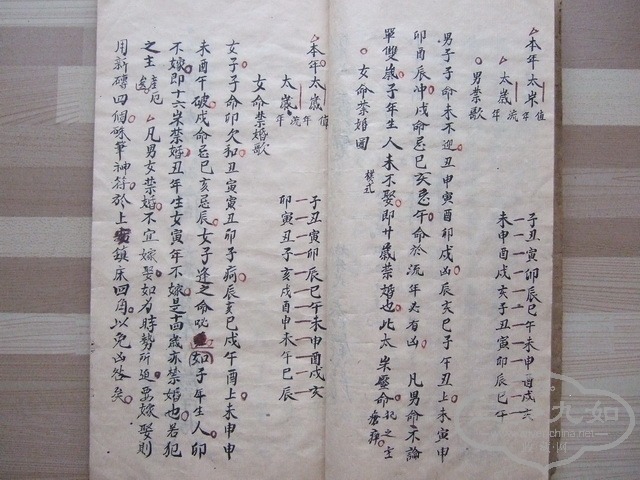 本年太岁值
太歲流年
子丑寅卯辰巳午未申酉戌亥
未申酉戌亥子丑寅卯辰巳午
男禁歌
男子子命未不迎丑申寅酉卯戌凶辰亥巳子午丑上未寅申
卯酉辰冲戌命忌巳亥忌午命於流年忌有凶 凡男命不論
單雙歲子年生人未不娶即廿歲禁婚也此太岁壓命犯之主
女命禁婚圖
式
本年太歲值
太歲流年
子丑寅卯辰巳午未申酉戌亥
卯寅丑子亥戌酉申未午巳辰
女命禁婚歌
女子子命卯欠和丑寅寅丑卯子病辰亥巳戌午酉上未申申
未酉午破戌命忌巳亥忌辰女子逢之命如子年生人卯
不嫁即十六岁禁婚丑年生女寅年不嫁是十四歲亦禁婚也若犯
之主產厄 凡男女禁婚不宜嫁娶如為時勢所迫嫁娶則
用新磚四個硃筆神符於上鎮床四角以免凶咎矣
九如
china.net